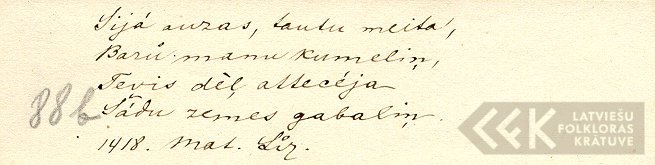 Sijá auzas, tautu meita,
Barú manu kumeliņ,
Tevis dēļ attecéja
Šādu zemes gabaliņ.
88b
1418. Mat. Līz.
LATVIEŠU
FOLKLORAS
KRĀTUVE